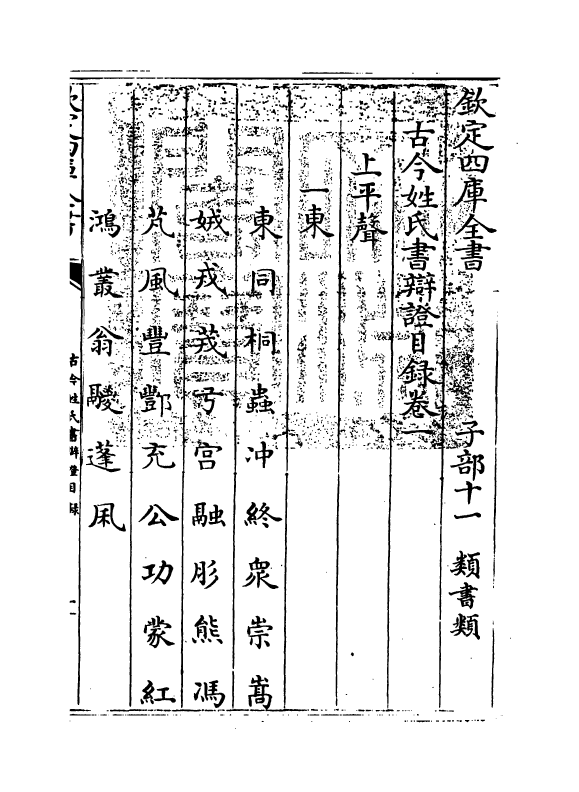 欽定四庫全書　子部十一　類書類
古今姓氏書辯證目録卷一
上平聲
一東
東同桐蟲沖終衆崇嵩
娀戎茙弓宫融肜熊馮
芃風豐酆充公功蒙紅
鴻叢翁騣蓬凩
欽定四庫全書
古今姓氏書辯證目録
一